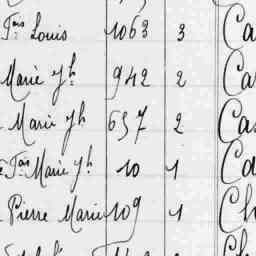 Fois Louis 1063 3 Ca
Marie Jh 942 2 Ca
Marie Jh 637 2 Cas
Fois Marie Jh 10 1 Ca
Pierre Marie 109 1 Ch